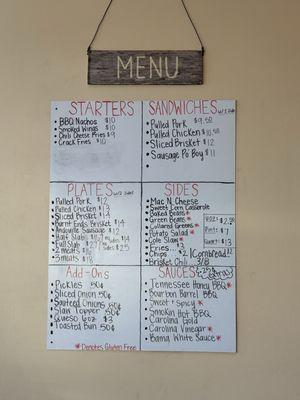 MENU
STARTERS
• BBQ Nachos $10
• Smoked Wings $10
• Chili Cheese Fries $9
• Crack Fries $10
SANDWICHES w/1 side
• Pulled Pork $9.50
• Pulled Chicken $10.50
• Sliced Brisket $12
• Sausage Po' Boy $11
PLATES w/2 sides
• Pulled Pork $12
• Pulled Chicken $13
• Sliced Brisket $14
• Burnt Ends Brisket $14
• Andouille Sausage $12
• Half Slab
• Full Slab
• 2 meats
• 3 meats $18
SIDES
• Mac N Cheese
• Sweet Corn Casserole
• Baked Beans *
• Green Beans *
• Collared Greens *
• Potato Salad *
• Cole Slaw *
• Fries $3
• Chips $2
• Brisket Chili 3/8
Cornbread
$2.50
Pint: $7
$13
Add-Ons
• Pickles 50¢
• Sliced Onion 50¢
• Sauteed Onions
• Slaw Topper 50¢
• Queso 6oz $3
• Toasted Bun 50¢
* Denotes Gluten Free
SAUCES
• Tennessee Honey BBQ *
• Bourbon Barrel BBQ
• Sweet & Spicy *
• Smokin Hot BBQ
• Carolina Gold
• Carolina Vinegar *
• Bama White Sauce *